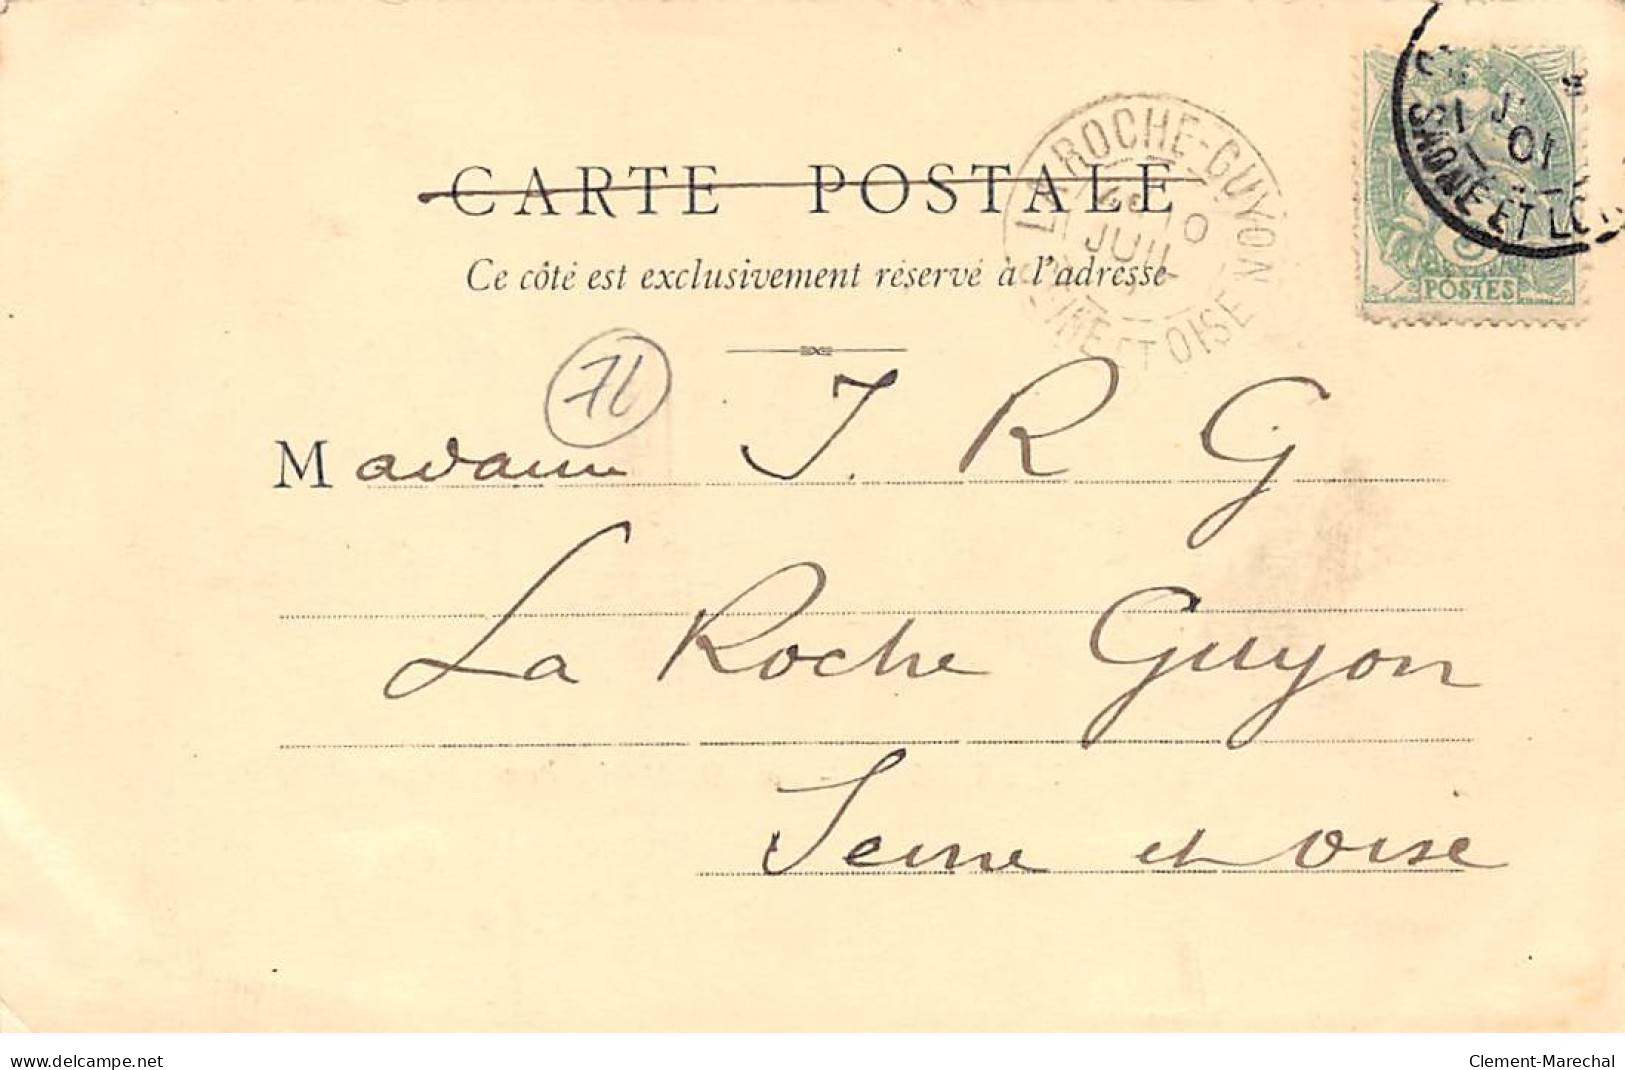 CARTE POSTALE
Ce côté est exclusivement réservé à l'adresse
LA ROCHE-GUYON
JUIL
SEINE ET OISE
01
SAONE ET LOI
5
POSTES
71
Madame J. R G
La Roche Guyon
Seine et Oise
www.delcampe.net
Clement-Marechal